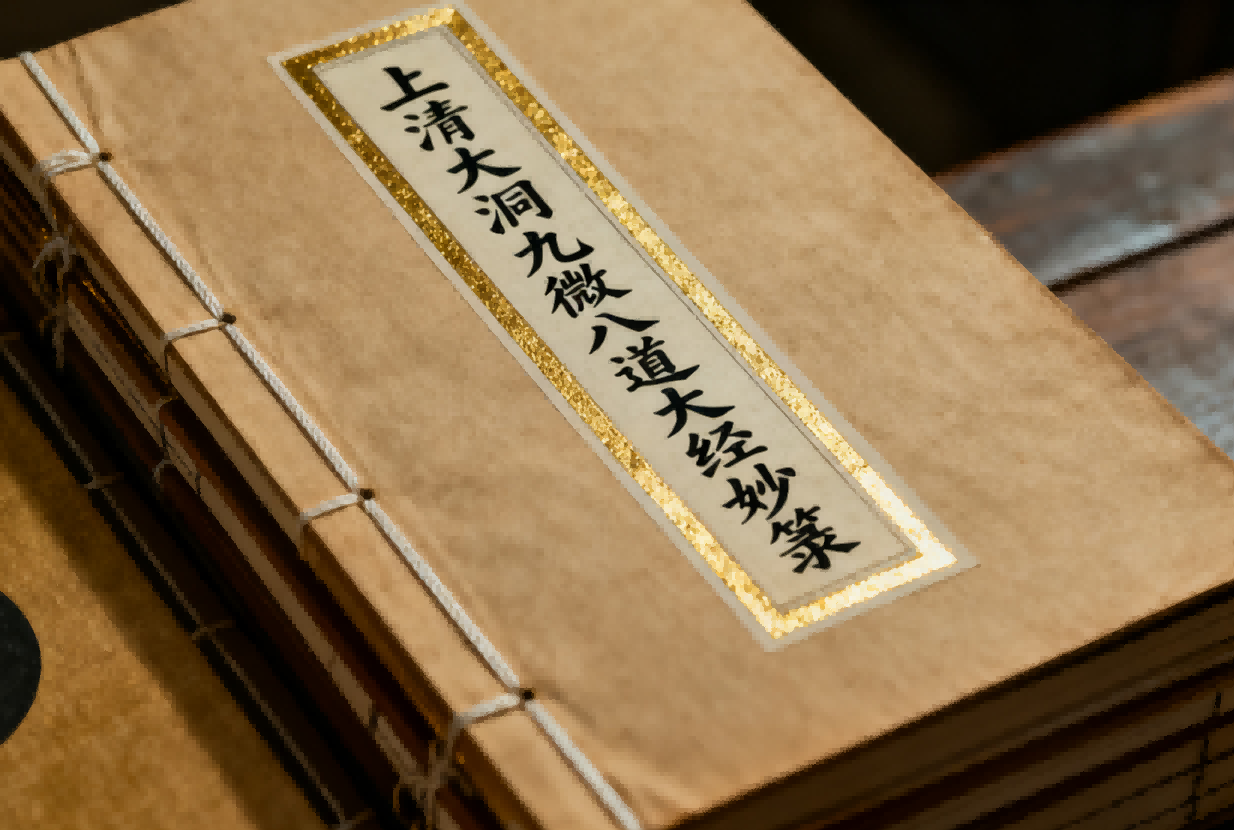 上清大洞九微八道大经妙箓